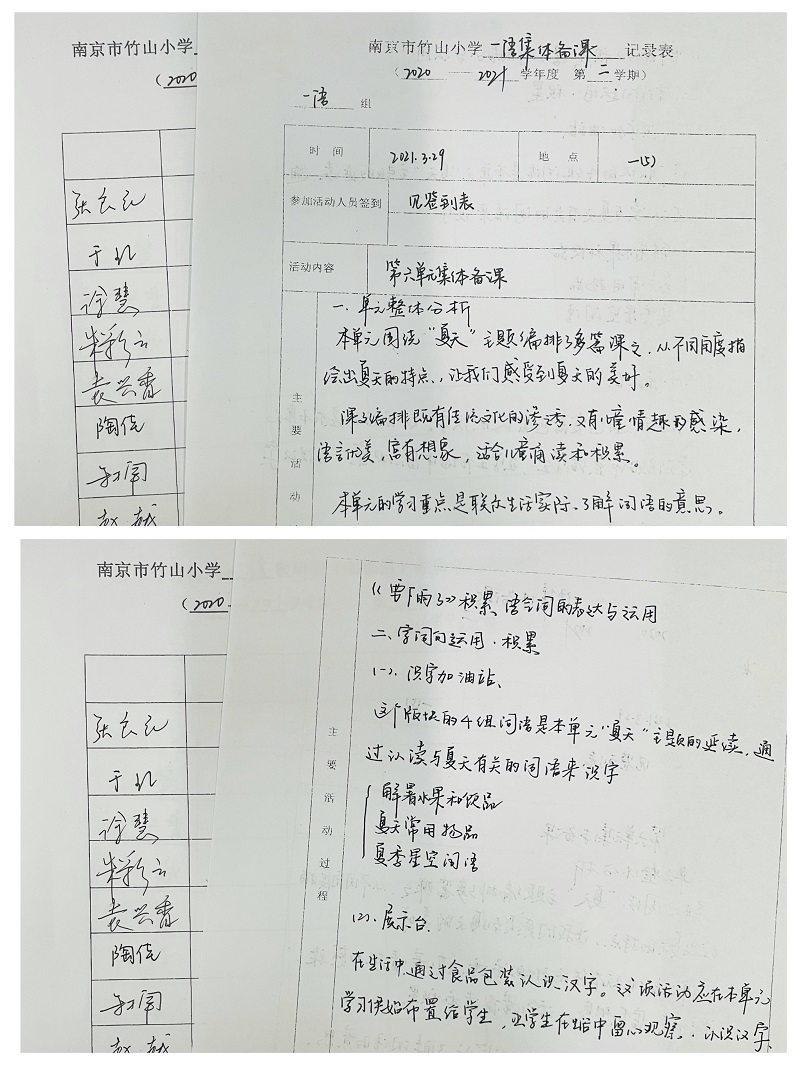 南京市竹山小学
（2020
张
于
徐慧
朱彩云
袁兴香
陶佳
南京市竹山小学 一语集体备课 记录表
（2020 — 2021 学年度 第 二 学期）
一语 组
时 间 2021.3.29 地 点 一(5)
参加活动人员签到 见签到表
活动内容 第六单元集体备课
主要活动
一、单元整体分析
本单元围绕“夏天”主题编排了多篇课文，从不同角度描
绘出夏天的特点，让我们感受到夏天的美好。
课文编排既有传统文化的渗透，又有儿童情趣的感染，
语言优美，富有想象，适合儿童诵读和积累。
本单元的学习重点是联系生活实际，了解词语的意思。
南京市竹山小学
（2020
张
于
徐慧
朱彩云
袁兴香
陶佳
主要活动过程
《要下雨了》积累语气词的表达与运用
二、字词句运用·积累
(一)、识字加油站、
这个版块的4组词语是本单元“夏天”主题的延读，通
过认读与夏天有关的词语来识字
解暑水果和饮品
夏天常用物品
夏季星空词语
(2)、展示台.
在生活中，通过食品包装认识汉字。这项活动应在本单元
学习伊始布置给学生，学生在生活中留心观察，认识汉字